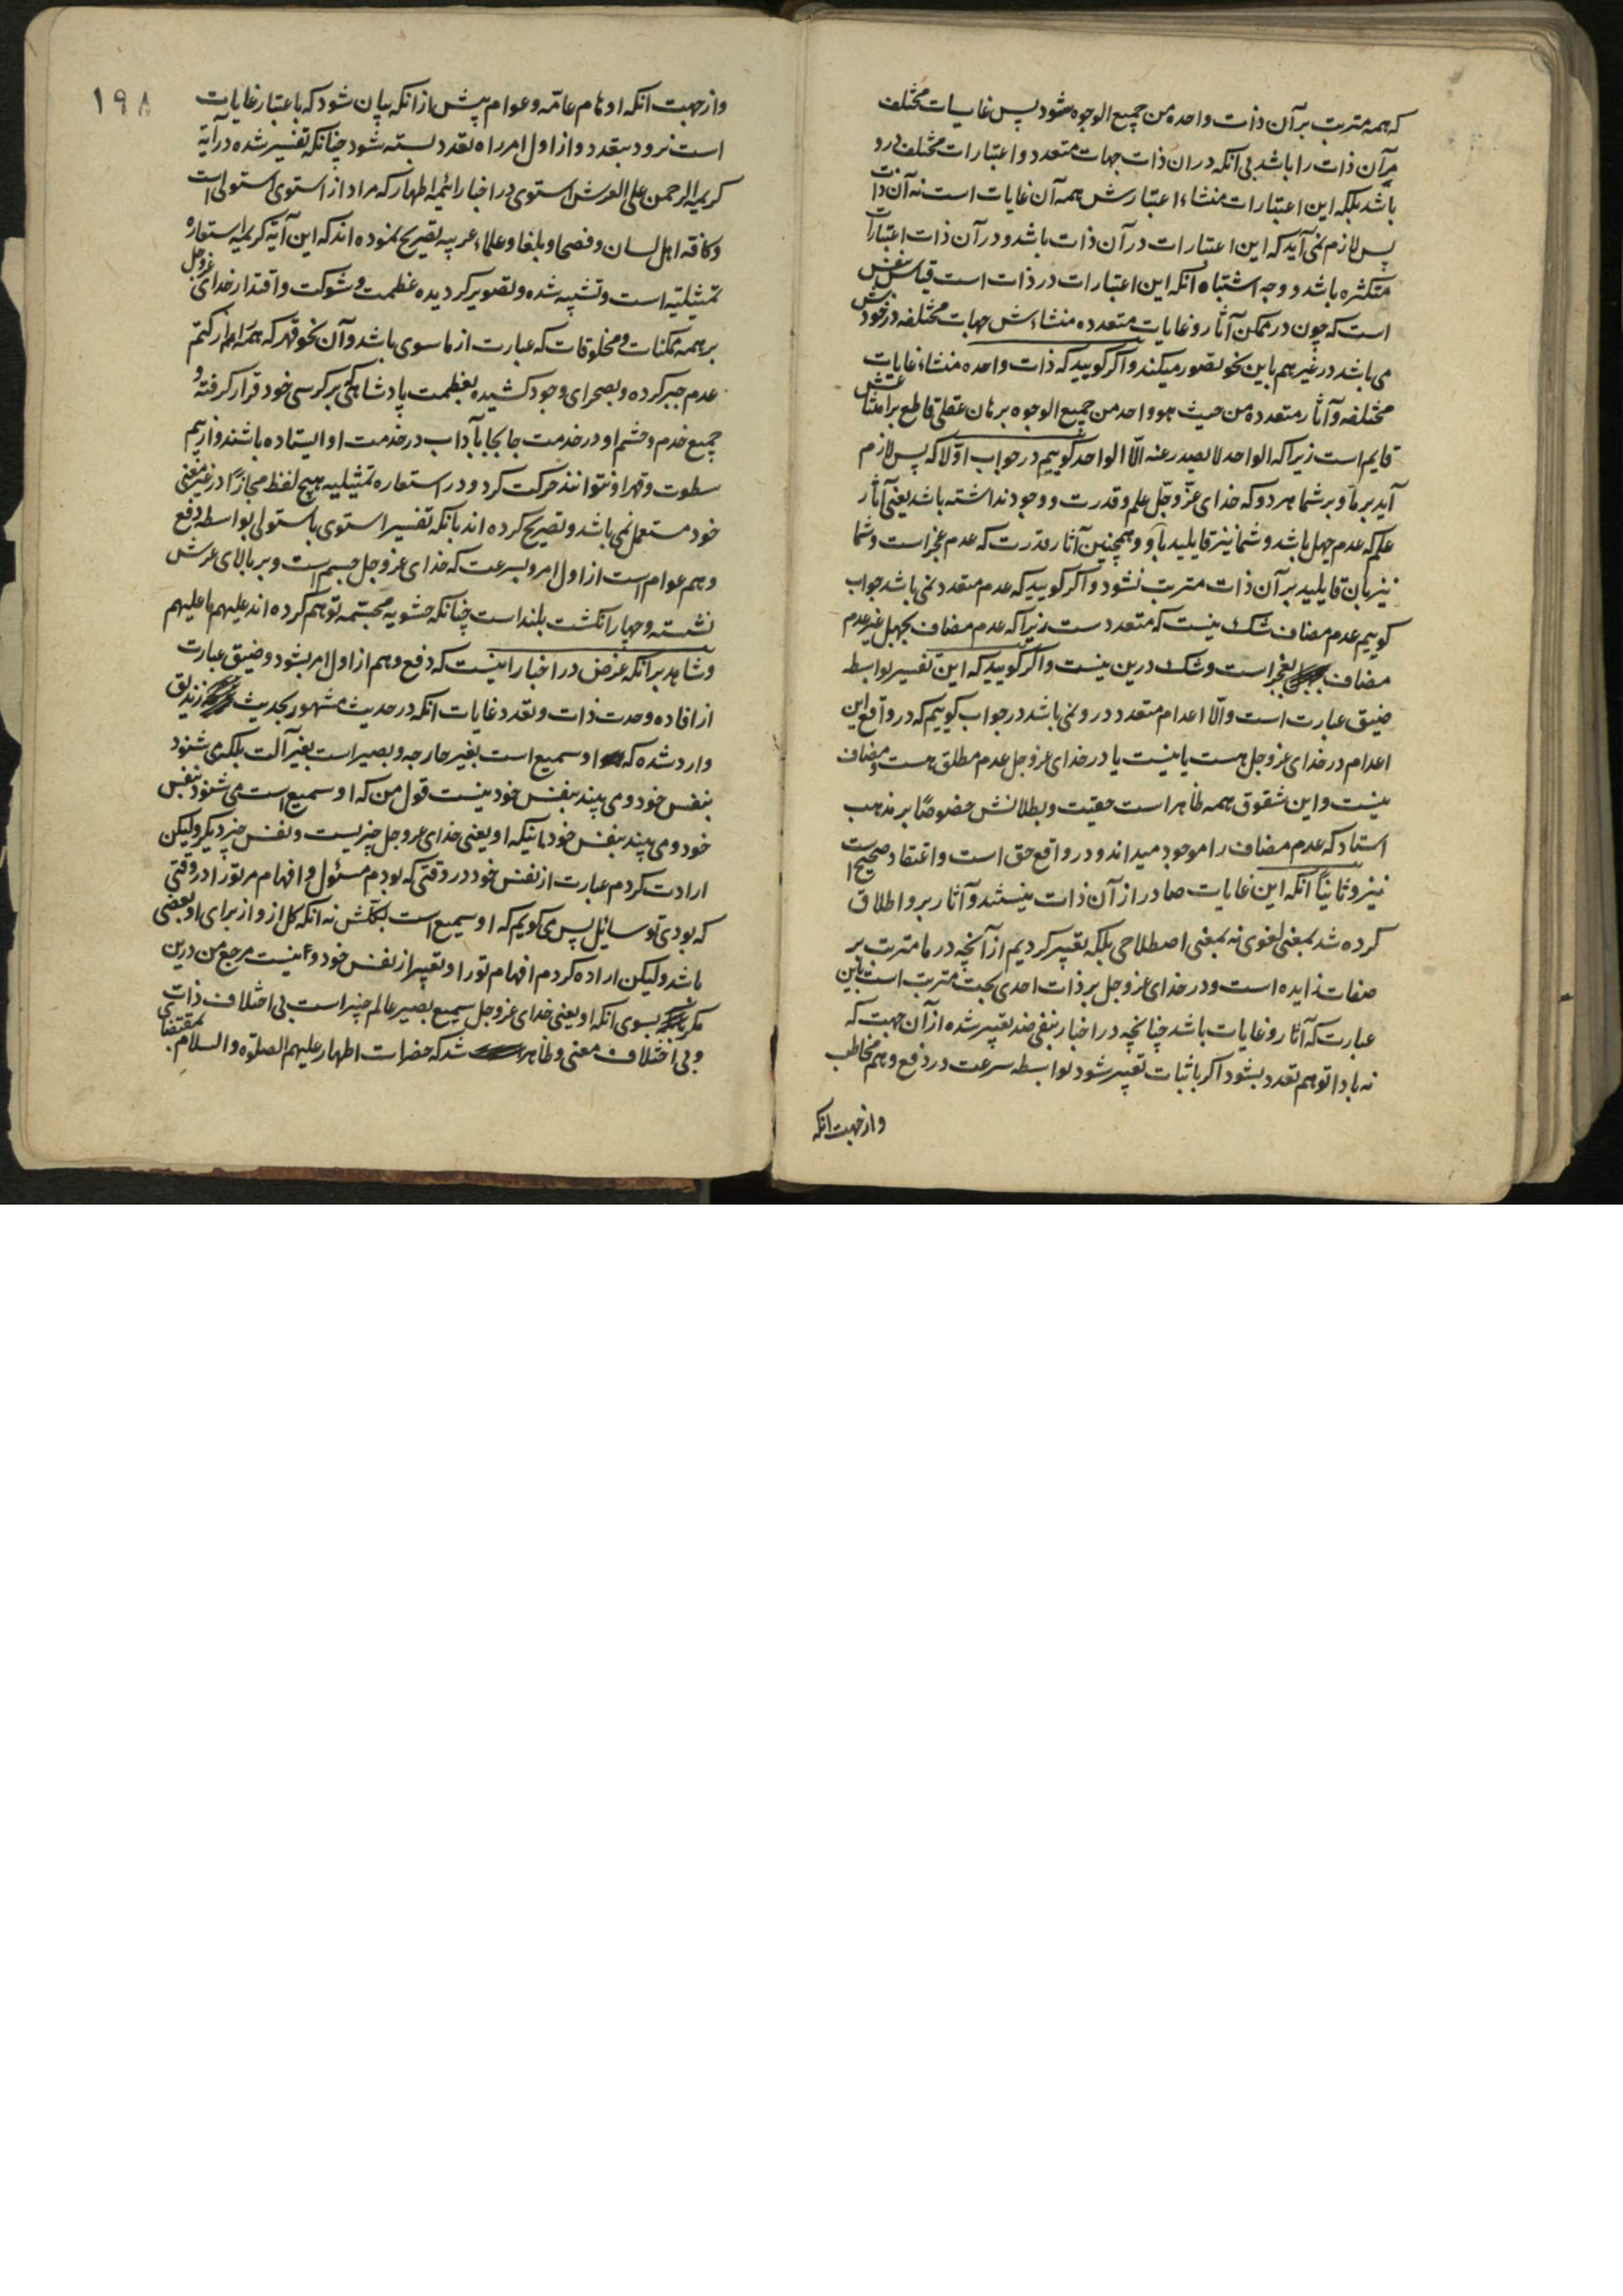 که همه مترتب بر آن ذات واحده من جمیع الوجوه شود پس غایات مختلف
مر آن ذات را باشد بی آنکه در آن ذات جهات متعدد و اعتبارات مختلف درو
باشد بلکه این اعتبارات منشاء اعتبارش همه آن غایات است نه آن ذات
پس لازم نمی آید که این اعتبارات در آن ذات باشد و در آن ذات اعتبارات
متکثره باشد و وجه اشتباه آنکه این اعتبارات در ذات است قیاس بنفس
است که چون در ممکن آثار و غایات متعدده منشاءش جهات مختلفه در خودش
می باشد در غیر هم باین نحو تصور میکند و اگر گویید که ذات واحده منشاء غایات
مختلفه و آثار متعدده من حیث هو واحد من جمیع الوجوه برهان عقلی قاطع بر امتناعش
قایم است زیرا که الواحد لا یصدر عنه الّا الواحد گوییم در جواب اوّلا که پس لازم
آید بر ما و بر شما هر دو که خدای عزّ و جّل علم و قدرت و وجود نداشته باشد یعنی آثار
علم که عدم جهل باشد و شما نیز قایلید باو و همچنین آثار قدرت که عدم عجز است و شما
نیز بان قایلید بر آن ذات مترتب نشود و اگر گویید که عدم متعدد نمی باشد جواب
گوییم عدم مضاف شک نیست که متعدد ست زیرا که عدم مضاف بجهل غیر عدم
مضاف بعجز است و شک درین نیست و اگر گویید که این تفسیر بواسطه
ضیق عبارت است و الّا اعدام متعدد درو نمی باشد در جواب گوییم که در واقع این
اعدام در خدای عز و جل هست یا نیست یا در خدای عز و جل عدم مطلق هست و مضاف
نیست و این شقوق همه ظاهر است حقیت و بطلانش خصوصًا بر مذهب
استاد که عدم مضاف را موجود میداند و در واقع حق است و اعتقاد صحیح است
نیز و ثانیًا آنکه این غایات صادر از آن ذات نیستند و آثار برو اطلاق
کرده شد بمعنی لغوی نه بمعنی اصطلاحی بلکه تعبیر کردیم از آنچه در ما مترتب بر
صفات زایده است و در خدای عز و جل بر ذات احدی بحت مترتب است باین
عبارت که آثار و غایات باشد چنانچه در اخبار بنفی ضد تعبیر شده از آن جهت که
نه بادا توهم تعدد بشود اگر باثبات تعبیر شود بواسطه سرعت در دفع وهم مخاطب
و از جهت انکه
۱۹۸
و از جهت آنکه اوهام عامّه و عوام پیش از آنکه بیان شود که باعتبار غایات
است نرود بتعدد و از اول امر راه تعدد بسته شود چنانکه تفسیر شده در آیه
کریمه الرحمن علی العرش استوی در اخبار ائمه اطهار که مراد از استوی استولی است
و کافه اهل لسان و فصحا و بلغا و علماء عربیه تصریح نموده اند که این آیه کریمه استعاره
تمثیلیه است و تشبیه شده و تصویر گردیده عظمت و شوکت و اقتدار خدای عز و جل
بر همه ممکنات و مخلوقات که عبارت از ماسوی باشد و آن نحو قهر که همه را از کتم
عدم جبر کرده و بصحرای وجود کشیده بعظمت پادشاهی که بر کرسی خود قرار گرفته و
جمیع خدم و حشم او در خدمت جابجا بآداب در خدمت او ایستاده باشند و از بیم
سطوت و قهر او نتوانند حرکت کرد و در استعاره تمثیلیه هیچ لفظ مجازًا در غیر معنی
خود مستعمل نمی باشد و تصریح کرده اند بانکه تفسیر استوی باستولی بواسطه دفع
وهم عوام است از اول امر و بسرعت که خدای عز و جل جسم است و بر بالای عرش
نشسته و چهار انگشت بلند است چنانکه حشویه مجسّمه توهم کرده اند علیهم ما علیهم
و شاهد بر آنکه غرض در اخبار اینست که دفع وهم از اول امر بشود و ضیق عبارت
از افاده وحدت ذات و تعدد غایات آنکه در حدیث مشهور بحدیث زندیق
وارد شده که او سمیع است بغیر جارحه و بصیر است بغیر آلت بلکه می شنود
بنفس خود و می بیند بنفس خود نیست قول من که او سمیع است می شنود بنفس
خود و می بیند بنفس خود باینکه او یعنی خدای عز و جل چیزیست و نفس چیز دیگر و لیکن
ارادت کردم عبارت از نفس خود در وقتی که بودم مسئول و افهام مر تو را در وقتی
که بودی تو سائل پس می گویم که او سمیع است بکلّش نه آنکه کل از و از برای او بعضی
باشد و لیکن اراده کردم افهام تو را و تعبیر از نفس خود و نیست مرجع من درین
مگر بسوی آنکه او یعنی خدای عز و جل سمیع بصیر عالم خبیر است بی اختلاف ذات
و بی اختلاف معنی و ظاهر شد که حضرات اطهار علیهم الصلوة و السلام بمقتضای